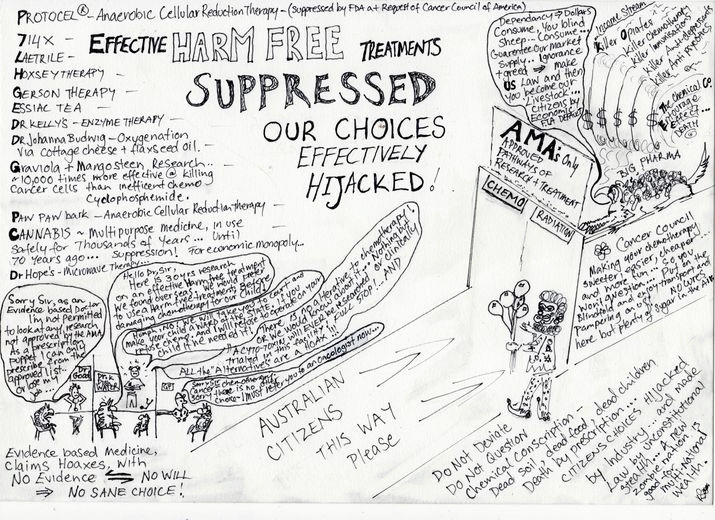 PROTOCEL® - Anaerobic Cellular Reduction Therapy - (suppressed by FDA at Request of Cancer Council of America)
714X -
LAETRILE -
HOXSEY THERAPY -
GERSON THERAPY -
ESSIAC TEA -
DR KELLY'S - ENZYME THERAPY -
DR Johanna Budwig - Oxygenation
via cottage cheese + flaxseed oil. -
Graviola + Mangosteen Research... -
~10,000 times more effective @ killing
Cancer cells than inefficent chemo
Cyclophosphimide.
PAW PAW bark - Anaerobic Cellular Reduction therapy -
CANNABIS ~ Multipurpose medicine, in use
Safely for Thousands of Years... Until
70 years ago... Suppression! For economic monopoly...
Dr Hope's - Microwave Therapy...
EFFECTIVE HARM FREE TREATMENTS
SUPPRESSED
OUR CHOICES
EFFECTIVELY
HIJACKED!
Dependancy → Dollars
Consume, You blind
Sheep... Consume...
Guarentee Our Market
Supply... Ignorance
+ greed → make
US Law and then
You become our
Livestock...
Citizens by
Economic
Income Stream
Killer Opiates
Killer Chemotherapy
Killer Immunisations
Killer Antidepressants
Killer Anti
The Chemical Co.
Encourage
Effect...
DEATH
$ $ $ $ $ $
BIG PHARMA
AMA's Only
APPROVED
PATHWAYS OF
RESEARCH + TREATMENT
CHEMO
RADIATION
Cancer Council
Making your chemotherapy
sweeter, easier, cheaper...
and more fun... so you
won't question... Put on the
Blindfold and enjoy the
Pampering and transport
NO CURES
here but plenty of sugar in the air
Sorry Sir, as an
Evidence based Doctor
I'm not permitted
to look at any research
not approved by the AMA
As a prescription
puppet I can only
prescribe from the
approved list.
or lose my
job...
Hello Dr, Sir,
Here is 30 yrs research
on an effective Harm free treatment
we found overseas. We would prefer
to use a harm-free treatment before
damaging chemotherapy for Our child
Ahhaa... NO! I will take you to court and
make your child a ward of the state if you
refuse chemo, and I will refuse to operate on your
child if he needed it. There is no alternative to chemotherapy,
or we would know about it. Nothing but
A CYTO-TOXIN WILL EVER be researched or clinically
trialed in this facility. FULL STOP!... AND
ALL the "Alternatives" are a HOAX!!!
sorry there is no
choice - I MUST refer you to an oncologist now...
GP
AUSTRALIAN
CITIZENS
THIS WAY
Please
Evidence based medicine,
claims Hoaxes, with
No Evidence ⇆ NO WILL
⇒ NO SANE CHOICE!
Do Not Deviate
DO NOT Question
Chemical Conscription -
Dead soil, dead food, dead children
Death by prescription...
CITIZENS CHOICES HIJACKED
by Industry... and made
Law by unconstitutional
stealth... A new
zombie nation is
good for multi-national
wealth.